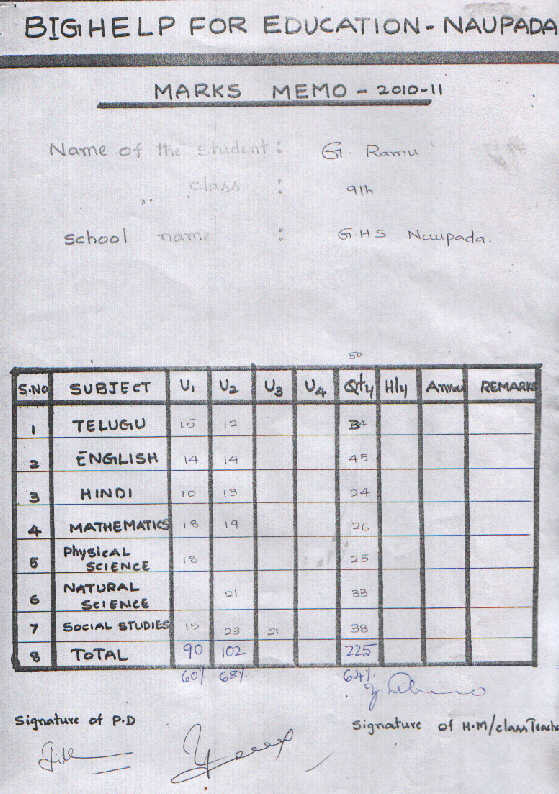 BIGHELP FOR EDUCATION - NAUPADA
MARKS MEMO - 2010-11
Name of the student : G. Ramu
,, class : 9th
School name : G.H.S Naupada.
50
S.NO SUBJECT U1 U2 U3 U4 Qty Hly Annu REMARKS
1 TELUGU 15 12
2 ENGLISH 14 14 45
3 HINDI 10 13 24
4 MATHEMATICS 18 19 26
5 Physical SCIENCE 18 25
6 NATURAL SCIENCE 21 33
7 SOCIAL STUDIES 15 23 21 38
8 TOTAL 90 102 225
60% 68% 64%
Signature of P.D
Signature of H.M/class Teache